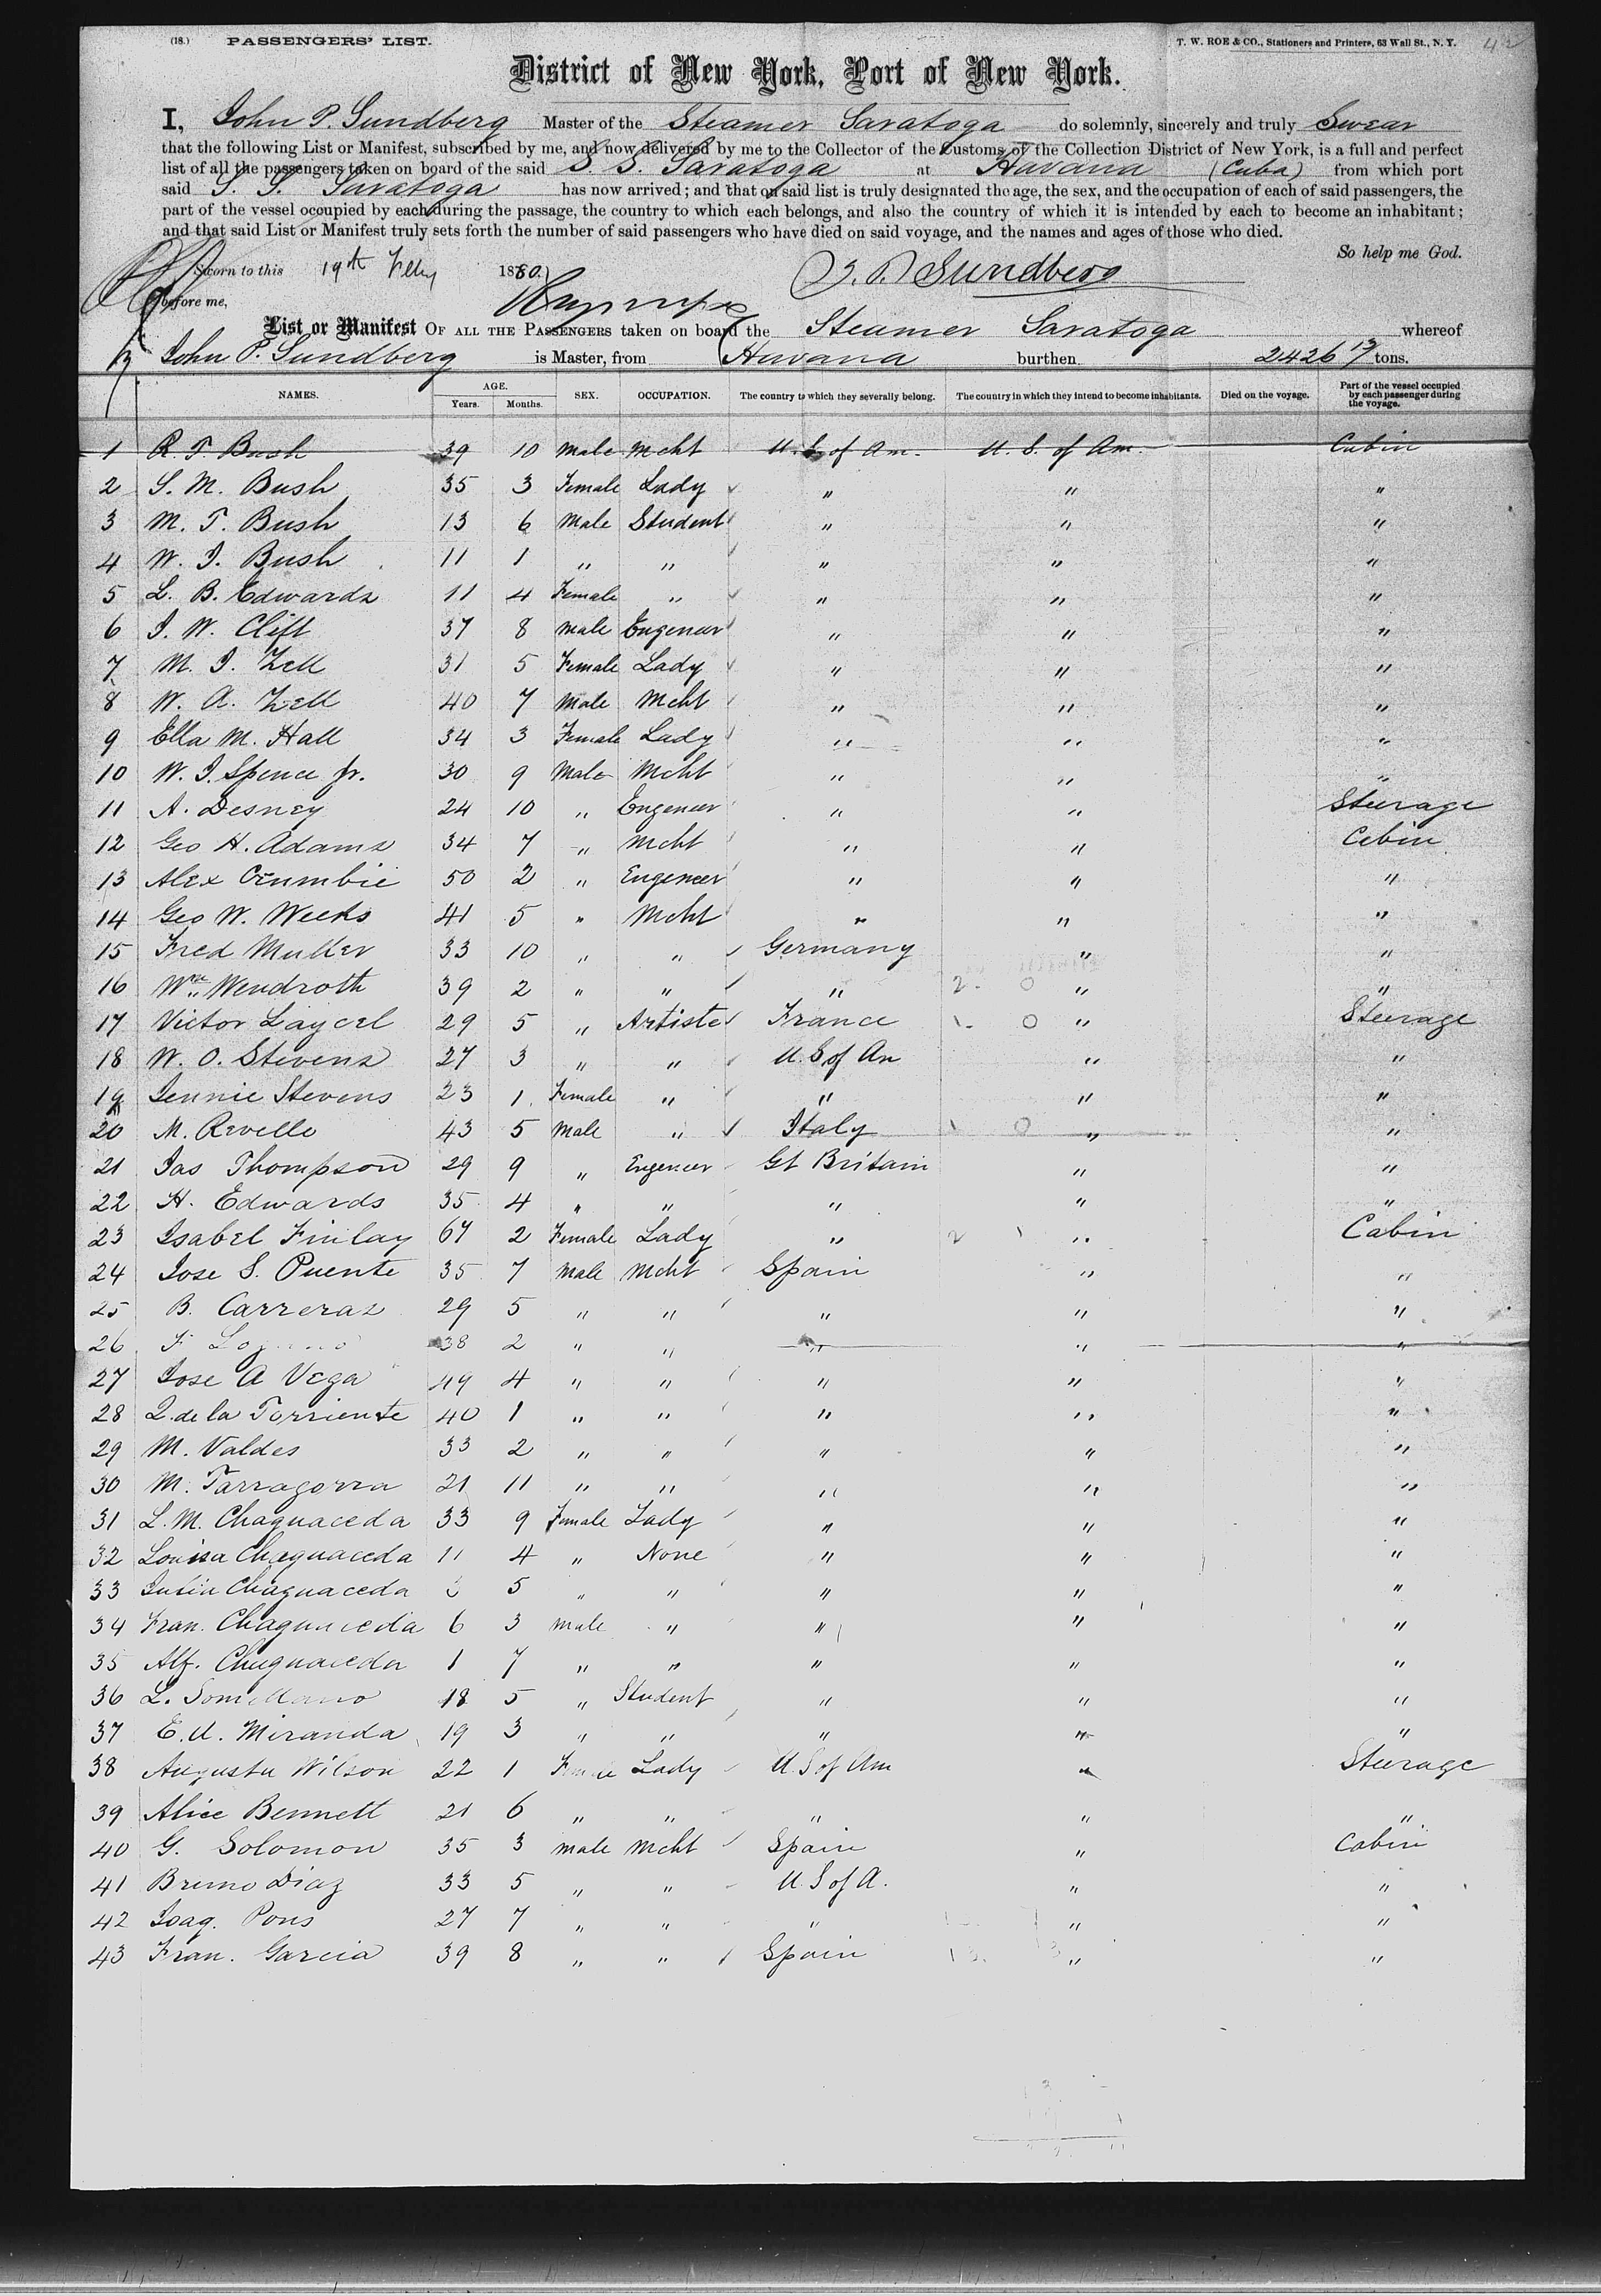 (18.) PASSENGERS' LIST. T. W. ROE & CO., Stationers and Printers, 63 Wall St., N. Y. 42
District of New York, Port of New York.
I, John P. Sundberg Master of the Steamer Saratoga do solemnly, sincerely and truly Swear
that the following List or Manifest, subscribed by me, and now delivered by me to the Collector of the Customs of the Collection District of New York, is a full and perfect
list of all the passengers taken on board of the said S. S. Saratoga at Havana (Cuba) from which port
said S. S. Saratoga has now arrived; and that on said list is truly designated the age, the sex, and the occupation of each of said passengers, the
part of the vessel occupied by each during the passage, the country to which each belongs, and also the country of which it is intended by each to become an inhabitant;
and that said List or Manifest truly sets forth the number of said passengers who have died on said voyage, and the names and ages of those who died.
So help me God.
Sworn to this 19th Feby 1880. J. P. Sundberg
before me,
List or Manifest OF ALL THE PASSENGERS taken on board the Steamer Saratoga whereof
John P. Sundberg is Master, from Havana burthen 2426 tons.
NAMES. AGE. Years. Months. SEX. OCCUPATION. The country to which they severally belong. The country in which they intend to become inhabitants. Died on the voyage. Part of the vessel occupied by each passenger during the voyage.
1 R. T. Bush 39 10 Male Mcht U. S. of Am. U. S. of Am. Cabin
2 S. M. Bush 35 3 Female Lady " " "
3 M. T. Bush 13 6 Male Student " " "
4 W. I. Bush 11 1 " " " " "
5 L. B. Edwards 11 4 Female " " " "
6 J. W. Clift 37 8 Male Engeneer " " "
7 M. J. Zell 31 5 Female Lady " " "
8 W. A. Zell 40 7 Male Mcht " " "
9 Ella M. Hall 34 3 Female Lady " " "
10 W. J. Spence Jr. 30 9 Male Mcht " " "
11 A. Desney 24 10 " Engeneer " " Steerage
12 Geo H. Adams 34 7 " Mcht " " Cabin
13 Alex Crumbie 50 2 " Engeneer " " "
14 Geo W. Weeks 41 5 " Mcht " " "
15 Fred Muller 33 10 " " Germany " "
16 Wm. Wendroth 39 2 " " " " "
17 Victor Laycel 29 5 " Artiste France " Steerage
18 W. O. Stevens 27 3 " " U. S of Am " "
19 Jennie Stevens 23 1 Female " " " "
20 M. Revelle 43 5 Male " Italy " "
21 Jas Thompson 29 9 " Engeneer Gt Britain " "
22 H. Edwards 35 4 " " " " "
23 Isabel Finlay 67 2 Female Lady " " Cabin
24 Jose S. Puente 35 7 Male Mcht Spain " "
25 B. Carreras 29 5 " " " " "
26 F. 38 2 " " " " "
27 Jose A Vega 49 4 " " " " "
28 Q. de la Torriente 40 1 " " " " "
29 M. Valdes 33 2 " " " " "
30 M. Tarragona 21 11 " " " " "
31 L. M. Chaguaceda 33 9 Female Lady " " "
32 Louisa Chaguaceda 11 4 " None " " "
33 Chaguaceda 5 " " " " "
34 Fran. Chaguaceda 6 3 male " " " "
35 Alf. Chaguaceda 1 7 " " " " "
36 L. 18 5 " Student " " "
37 E. U. Miranda 19 3 " " " " "
38 Augusta Wilson 22 1 Female Lady U. S of Am " Steerage
39 Alice Bennett 21 6 " " " " "
40 G. Solomon 35 3 male Mcht Spain " Cabin
41 Bruno Diaz 33 5 " " U. S of A. " "
42 Joaq. Pons 27 7 " " " " "
43 Fran. Garcia 39 8 " " Spain " "